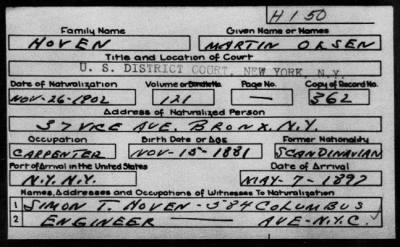 H150
Family Name Given Name or Names
HOVEN MARTIN OLSEN
Title and Location of Court
U. S. DISTRICT COURT, NEW YORK, N.Y.
Date of Naturalization Volume or Bundle No. Page No. Copy of Record No.
NOV-26-1902 121 — 362
Address of Naturalized Person
37 VICE AVE. BRONX. N.Y.
Occupation Birth Date or Age Former Nationality
CARPENTER NOV-15-1881 SCANDINAVIAN
Port of Arrival in the United States Date of Arrival
N.Y. N.Y. MAY-7-1897
Names, Addresses and Occupations of Witnesses To Naturalization
1 SIMON T. HOVEN - 584 COLUMBUS
2 ENGINEER — AVE-N.Y.C.